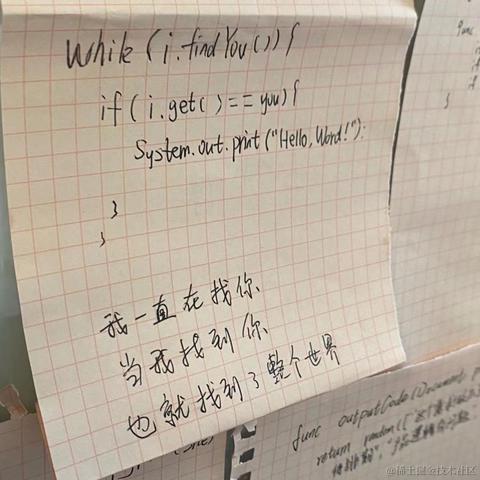 while (i.findYou()){
if(i.get()==you){
System.out.print("Hello,Word!");
}
}
我一直在找你
当我找到你
也就找到了整个世界
func
if
if
}
func outputCode(Document
return random(["
@稀土掘金技术社区